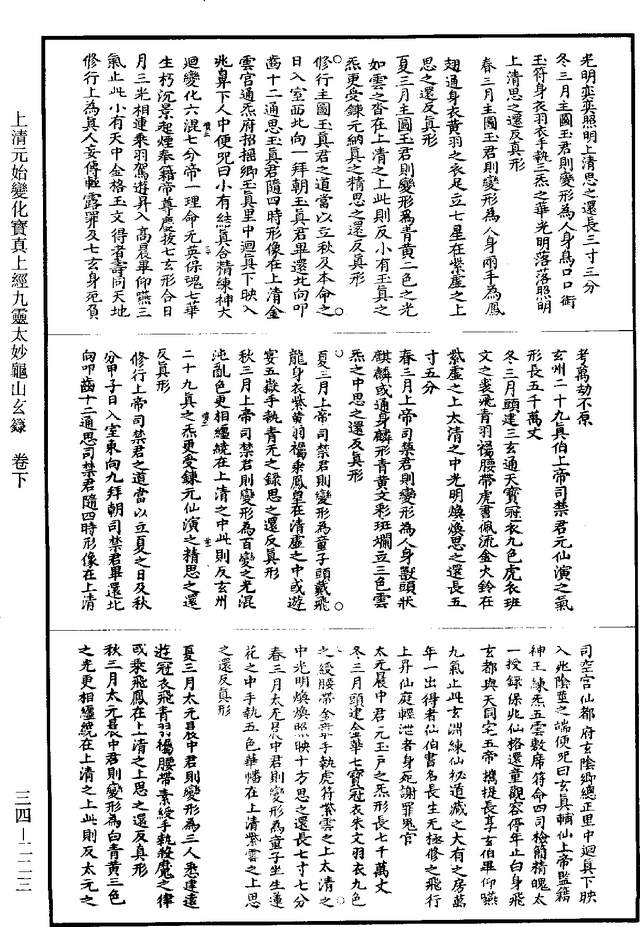 光明奕奕照明上清思之還長三寸三分
冬三月主圖玉君則變形為人身鳥口口銜
玉符身衣羽衣手執三炁之華光明落落照明
上清思之還反真形
春三月主圖玉君則變形為人身兩手為鳳
翅通身衣黃羽之衣足立七星在紫虛之上
思之還反真形
夏三月主圖玉君則變形為青黃二色之光
如雲之沓在上清之上此則反小有玉真之
炁更受鍊元納真之精思之還反真形
修行主圖玉真君之道當以立秋及本命之
日入室西北向一拜朝玉真君畢還北向叩
齒十二通思玉真君隨四時形像在上清金
雲宮通炁府招搖鄉玉真里中迴真下映入
兆鼻下人中便咒曰小有結真合精練神大
迴變化六混七分帝一理命元英保魂七華
生朽沉景起煙奉籍帝尊慶拔七玄形合日
月三光相連乘羽駕遊昇入高晨畢仰嚥三
氣止此小有天中金格玉文得者壽同天地
修行上為真人妄傳輕露罪及七玄身死負
考萬劫不原
玄州二十九真伯上帝司禁君元仙演之氣
形長五千萬丈
冬三月頭建三玄通天寶冠衣九色虎衣班
文之裘飛青羽褐腰帶虎書佩流金火鈴在
紫虛之上太清之中光明煥煥思之還長五
寸五分
春三月上帝司禁君則變形為人身獸頭狀
麒麟或通身麟形青黃文彩班斕立三色雲
炁之中思之還反真形
夏三月上帝司禁君則變形為童子頭戴飛
龍身衣紫黃羽褐乘鳳皇在清虛之中或遊
宴五嶽手執青元之錄思之還反真形
秋三月上帝司禁君則變形為百變之光混
沌亂色更相纏繞在上清之中此則反玄州
二十九真之炁更受鍊元仙演之精思之還
反真形
修行上帝司禁君之道當以立夏之日及秋
分甲子日入室東向九拜朝司禁君畢還北
向叩齒十二通思司禁君隨四時形像在上清
司空宮仙都府玄陰鄉總正里中迴真下映
入兆陰莖之端便咒曰玄真輔仙上帝監籍
神王練炁五雲敷席符命四司檢簡精魄太
一授錄保兆仙格還童觀容停年止白身飛
玄都與天同宅五帝攜提長享玄伯畢仰嚥
九氣止此玄洲練仙祕道藏之大有之房萬
年一出得者仙伯書名長生无極修之飛行
上昇仙庭輕泄者身死謝罪鬼官
太元晨中君二元玉戶之炁形長七千萬丈
冬三月頭建金華七寶冠衣朱文羽衣九色
之綬腰帶金鈴手執虎符紫雲之上太清之
中光明煥煥照映十方思之還長七寸七分
春三月太元晨中君則變形為童子坐生蓮
花之中手執五色華幡在上清紫雲之上思
之還反真形
夏三月太元晨中君則變形為三人悉建遠
遊冠衣飛青羽褐腰帶素綬手執殺魔之律
或乘飛鳳在上清之上思之還反真形
秋三月太元晨中君則變形為白青黃三色
之光更相纏繞在上清之上此則反太元之
上清元始變化寶真上經九靈太妙龜山玄籙 卷下
三四－二一三